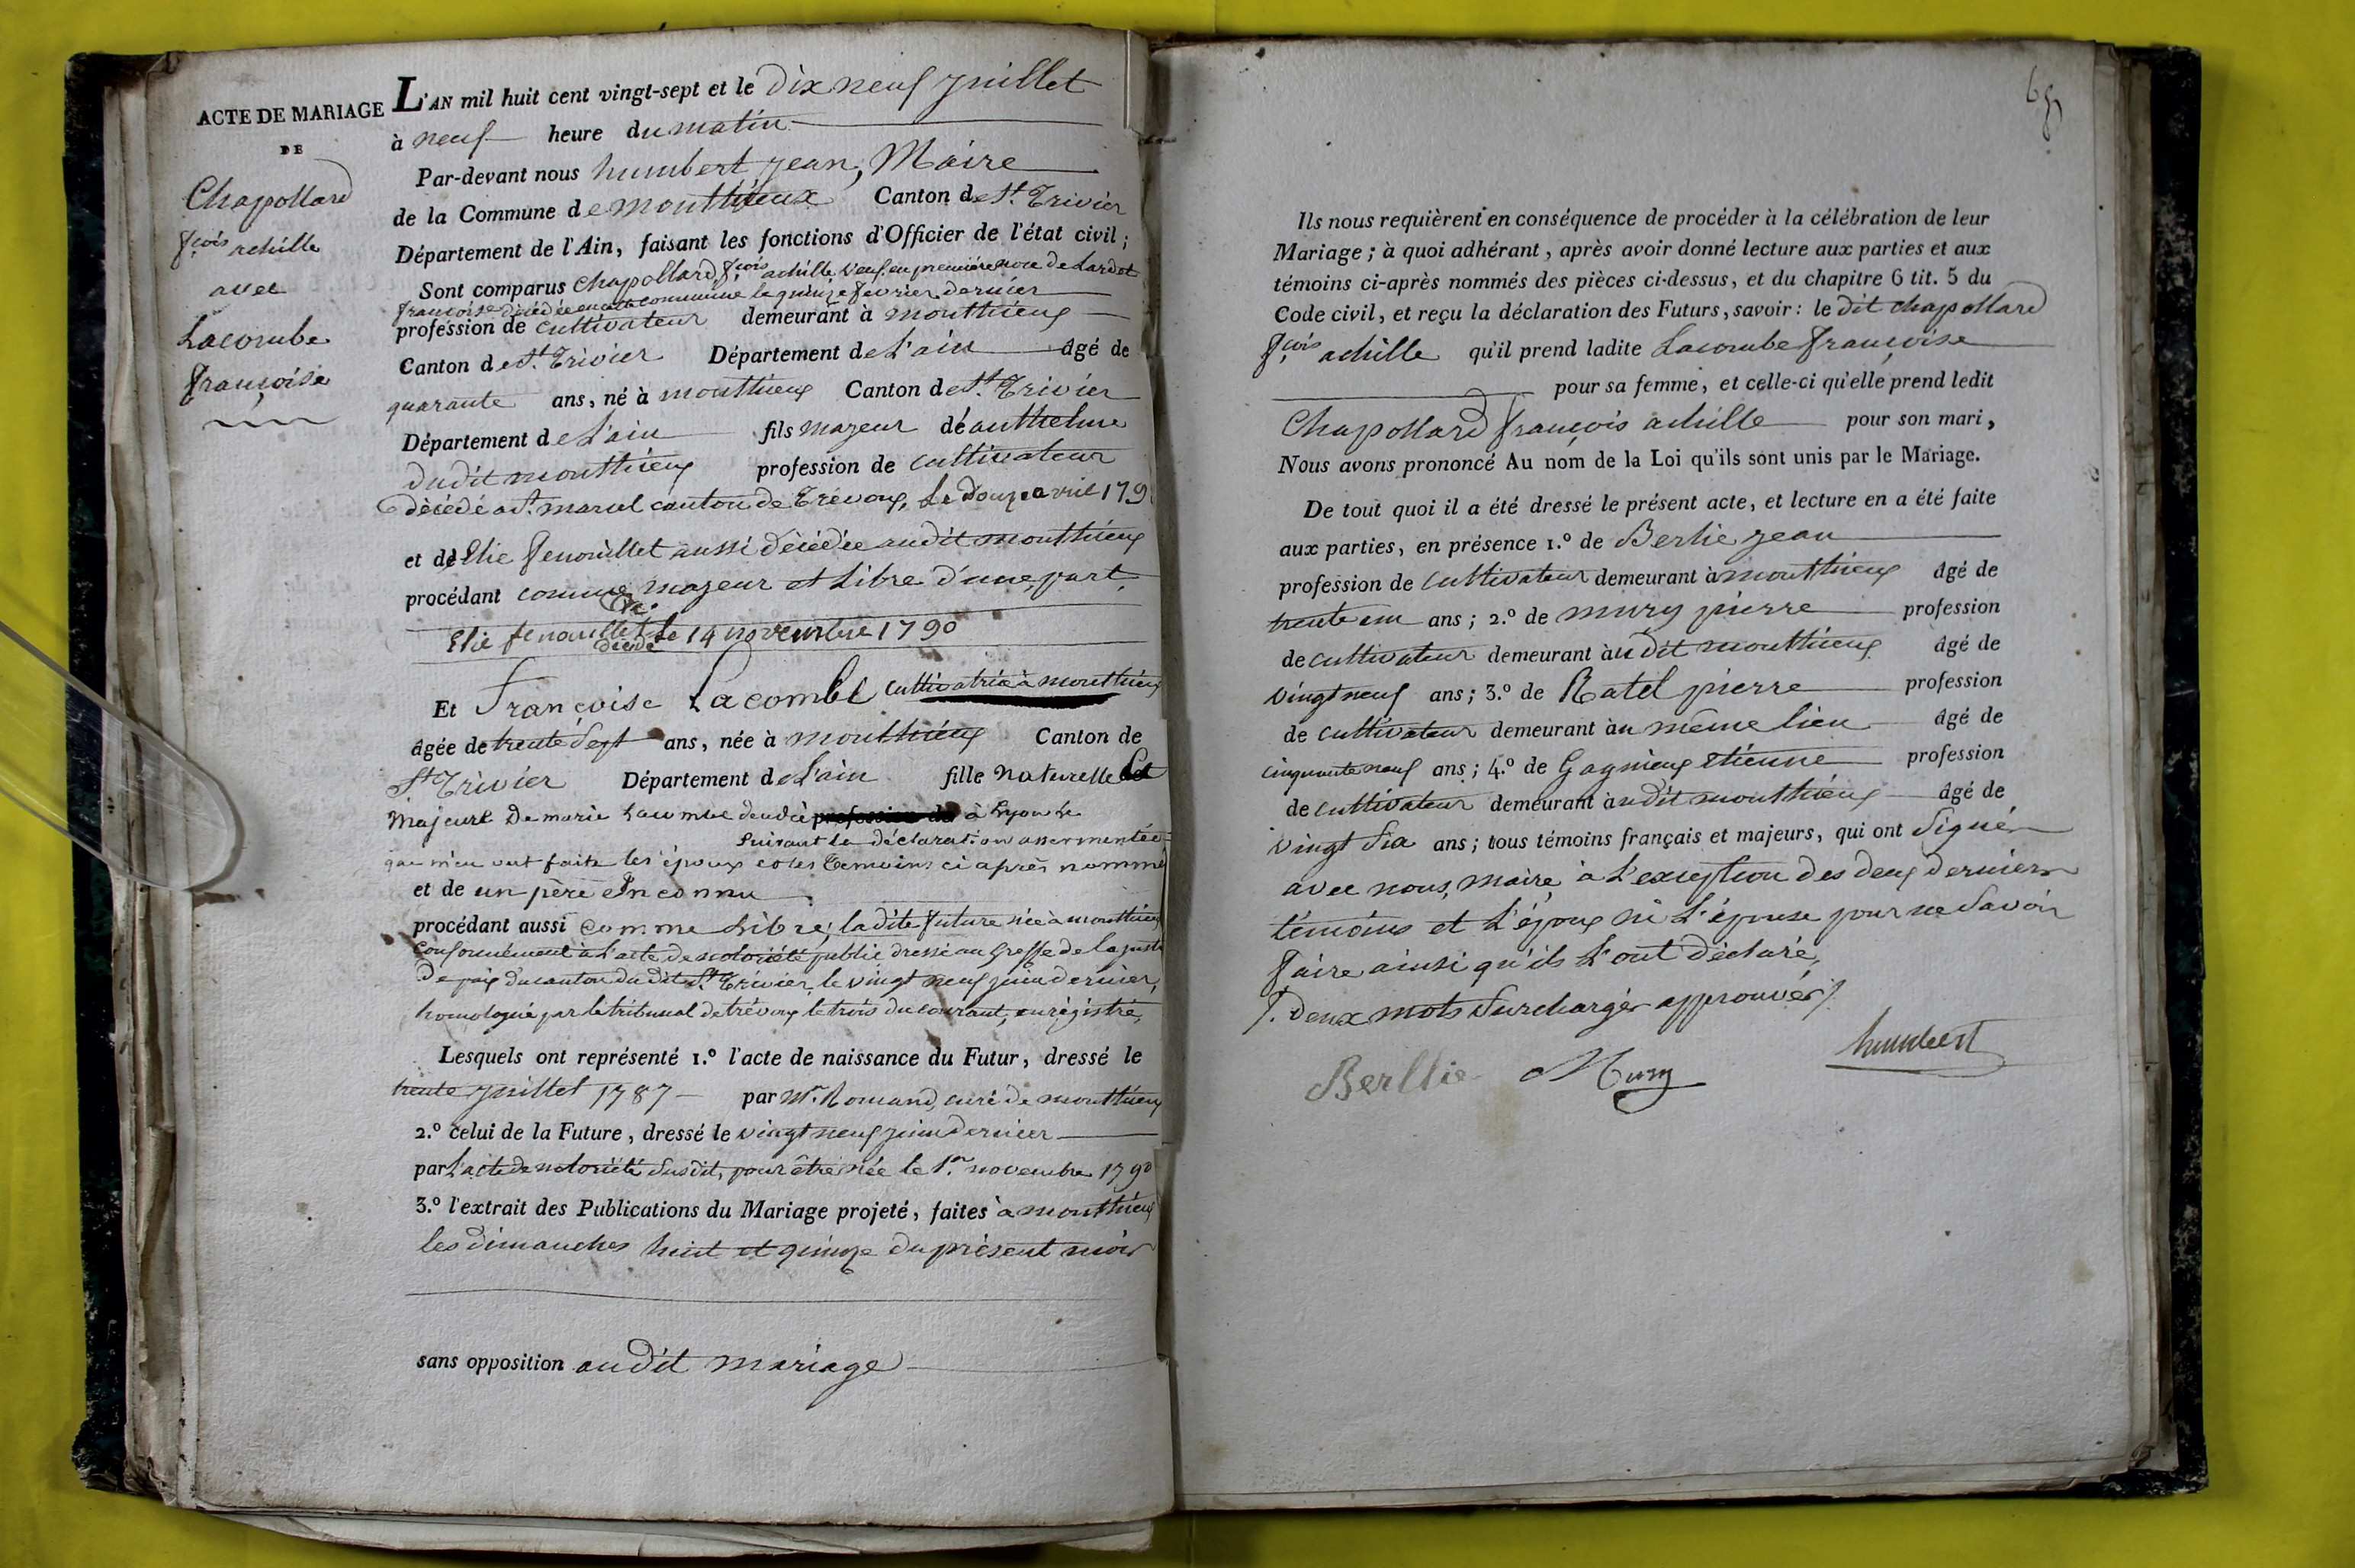 ACTE DE MARIAGE
DE
Chapollard
f.çois achille
avec
Lacombe
françoise
L'AN mil huit cent vingt-sept et le dix neuf juillet
à neuf heure du matin
Par-devant nous humbert jean, Maire
de la Commune de monthieux Canton de St. Trivier
Département de l'Ain, faisant les fonctions d'Officier de l'état civil ;
Sont comparus Chapollard f.çois achille, veuf en première noce de Lardet
françoise décédée en cette commune le quinze fevrier dernier
profession de cultivateur demeurant à monthieux
Canton de St. Trivier Département de L'ain âgé de
quarante ans, né à monthieux Canton de St. Trivier
Département de L'ain fils majeur de anthelme
dudit monthieux profession de cultivateur
décédé a St. marcel canton de Trévoux, Le douze avril 179
et de Elie fenouillet aussi décédée audit monthieux
procédant comme majeur et Libre d'une part,
Elie fenouillet décédé Le 14 novembre 1790
Et françoise Lacombe cultivatrice à monthieux
âgée de trente sept ans, née à monthieux Canton de
St. Trivier Département de L'ain fille naturelle Et
Majeure De marie Lacombe décédée à Lyon Le
suivant la déclaration assermentée
que m'en ont faite les époux et les temoins ci après nommé
et de un père Inconnu
procédant aussi comme Libre; ladite future née à monthieux
conformément à L'acte de notoriété public dressé au Greffe de la justi
De paix du canton du dit St. Trivier, le vingt neuf juin dernier,
homologué par le tribunal de trévoux le trois du courant, enrégistré,
Lesquels ont représenté 1.º l'acte de naissance du Futur, dressé le
trente juillet 1787 par Mr. Romand, curé de monthieux
2.º celui de la Future, dressé le vingt neuf juin dernier
par L'acte de notoriété susdit, pour être née le 1er. novembre 1790
3.º l'extrait des Publications du Mariage projeté, faites à monthieux
les dimanches huit et quinze du présent mois
sans opposition audit mariage
Ils nous requièrent en conséquence de procéder à la célébration de leur
Mariage ; à quoi adhérant, après avoir donné lecture aux parties et aux
témoins ci-après nommés des pièces ci-dessus, et du chapitre 6 tit. 5 du
Code civil, et reçu la déclaration des Futurs, savoir : le dit chapollard
f.çois achille qu'il prend ladite Lacombe françoise
pour sa femme, et celle-ci qu'elle prend ledit
Chapollard françois achille pour son mari,
Nous avons prononcé Au nom de la Loi qu'ils sont unis par le Mariage.
De tout quoi il a été dressé le présent acte, et lecture en a été faite
aux parties, en présence 1.º de Berlie jean
profession de cultivateur demeurant à monthieux âgé de
trente un ans ; 2.º de mury pierre profession
de cultivateur demeurant audit monthieux âgé de
vingt neuf ans ; 3.º de Ratel pierre profession
de cultivateur demeurant au même lieu âgé de
cinquante neuf ans ; 4.º de Gagnieux etienne profession
de cultivateur demeurant audit monthieux âgé de
vingt six ans ; tous témoins français et majeurs, qui ont signés
avec nous, maire à L'exception des deux derniers
témoins et L'époux ni L'épouse pour ne savoir
faire ainsi qu'ils L'ont déclaré,
/. deux mots surchargés approuvés /.
Berllie Mury humbert